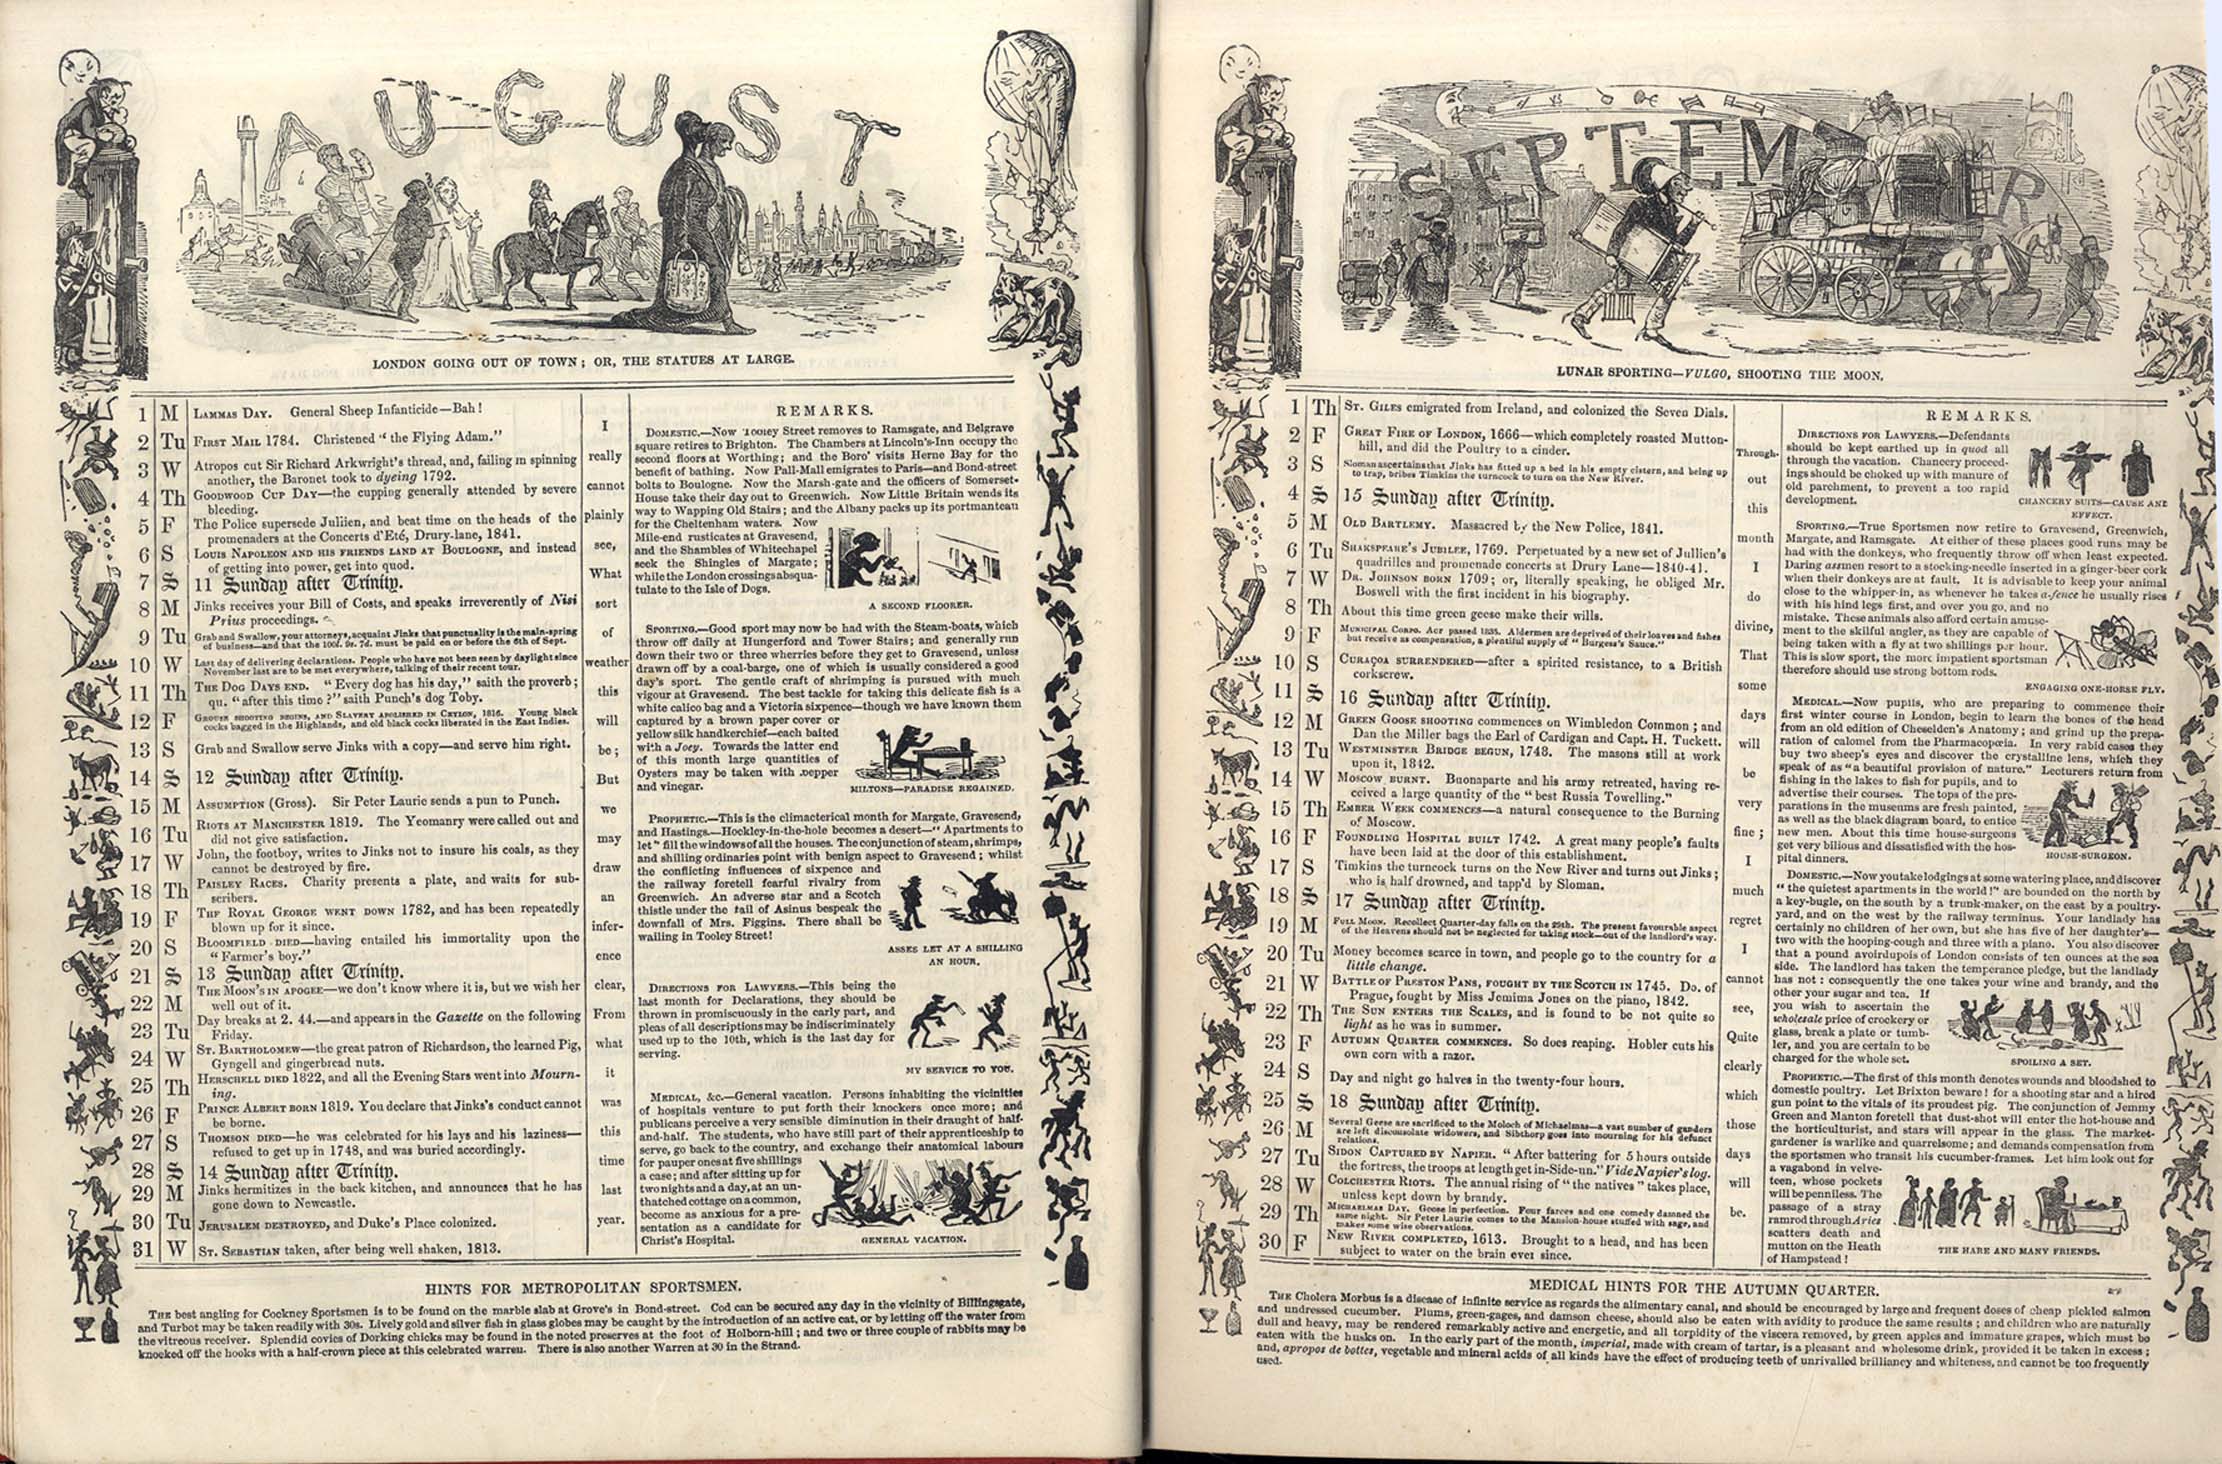 AUGUST
LONDON GOING OUT OF TOWN; OR, THE STATUES AT LARGE.
1 M LAMMAS DAY. General Sheep Infanticide—Bah!
2 Tu FIRST MAIL 1784. Christened "the Flying Adam."
3 W Atropos cut Sir Richard Arkwright's thread, and, failing in spinning
another, the Baronet took to dyeing 1792.
4 Th GOODWOOD CUP DAY—the cupping generally attended by severe
bleeding.
5 F The Police supersede Jullien, and beat time on the heads of the
promenaders at the Concerts d'Eté, Drury-lane, 1841.
6 S LOUIS NAPOLEON AND HIS FRIENDS LAND AT BOULOGNE, and instead
of getting into power, get into quod.
7 S 11 Sunday after Trinity.
8 M Jinks receives your Bill of Costs, and speaks irreverently of Nisi
Prius proceedings.
9 Tu Grab and Swallow, your attorneys, acquaint Jinks that punctuality is the main-spring
of business—and that the 100l. 9s. 7d. must be paid on or before the 6th of Sept.
10 W Last day of delivering declarations. People who have not been seen by daylight since
November last are to be met everywhere, talking of their recent tour.
11 Th THE DOG DAYS END. "Every dog has his day," saith the proverb;
qu. "after this time?" saith Punch's dog Toby.
12 F GROUSE SHOOTING BEGINS, AND SLAVERY ABOLISHED IN CEYLON, 1816. Young black
cocks bagged in the Highlands, and old black cocks liberated in the East Indies.
13 S Grab and Swallow serve Jinks with a copy—and serve him right.
14 S 12 Sunday after Trinity.
15 M ASSUMPTION (Gross). Sir Peter Laurie sends a pun to Punch.
16 Tu RIOTS AT MANCHESTER 1819. The Yeomanry were called out and
did not give satisfaction.
17 W John, the footboy, writes to Jinks not to insure his coals, as they
cannot be destroyed by fire.
18 Th PAISLEY RACES. Charity presents a plate, and waits for sub-
scribers.
19 F THE ROYAL GEORGE WENT DOWN 1782, and has been repeatedly
blown up for it since.
20 S BLOOMFIELD DIED—having entailed his immortality upon the
"Farmer's boy."
21 S 13 Sunday after Trinity.
22 M THE MOON'S IN APOGEE—we don't know where it is, but we wish her
well out of it.
23 Tu Day breaks at 2. 44.—and appears in the Gazette on the following
Friday.
24 W ST. BARTHOLOMEW—the great patron of Richardson, the learned Pig,
Gyngell and gingerbread nuts.
25 Th HERSCHELL DIED 1822, and all the Evening Stars went into Mourn-
ing.
26 F PRINCE ALBERT BORN 1819. You declare that Jinks's conduct cannot
be borne.
27 S THOMSON DIED—he was celebrated for his lays and his laziness—
refused to get up in 1748, and was buried accordingly.
28 S 14 Sunday after Trinity.
29 M Jinks hermitizes in the back kitchen, and announces that he has
gone down to Newcastle.
30 Tu JERUSALEM DESTROYED, and Duke's Place colonized.
31 W ST. SEBASTIAN taken, after being well shaken, 1813.
I
really
cannot
plainly
see,
What
sort
of
weather
this
will
be;
But
we
may
draw
an
infer-
ence
clear,
From
what
it
was
this
time
last
year.
REMARKS.
DOMESTIC.—Now Tooley Street removes to Ramsgate, and Belgrave
square retires to Brighton. The Chambers at Lincoln's-Inn occupy the
second floors at Worthing; and the Boro' visits Herne Bay for the
benefit of bathing. Now Pall-Mall emigrates to Paris—and Bond-street
bolts to Boulogne. Now the Marsh-gate and the officers of Somerset-
House take their day out to Greenwich. Now Little Britain wends its
way to Wapping Old Stairs; and the Albany packs up its portmanteau
for the Cheltenham waters. Now
Mile-end rusticates at Gravesend,
and the Shambles of Whitechapel
seek the Shingles of Margate;
while the London crossings absqua-
tulate to the Isle of Dogs.
A SECOND FLOORER.
SPORTING.—Good sport may now be had with the Steam-boats, which
throw off daily at Hungerford and Tower Stairs; and generally run
down their two or three wherries before they get to Gravesend, unless
drawn off by a coal-barge, one of which is usually considered a good
day's sport. The gentle craft of shrimping is pursued with much
vigour at Gravesend. The best tackle for taking this delicate fish is a
white calico bag and a Victoria sixpence—though we have known them
captured by a brown paper cover or
yellow silk handkerchief—each baited
with a Joey. Towards the latter end
of this month large quantities of
Oysters may be taken with pepper
and vinegar.
MILTONS—PARADISE REGAINED.
PROPHETIC.—This is the climacterical month for Margate, Gravesend,
and Hastings.—Hockley-in-the-hole becomes a desert—"Apartments to
let" fill the windows of all the houses. The conjunction of steam, shrimps,
and shilling ordinaries point with benign aspect to Gravesend; whilst
the conflicting influences of sixpence and
the railway foretell fearful rivalry from
Greenwich. An adverse star and a Scotch
thistle under the tail of Asinus bespeak the
downfall of Mrs. Figgins. There shall be
wailing in Tooley Street!
ASSES LET AT A SHILLING
AN HOUR.
DIRECTIONS FOR LAWYERS.—This being the
last month for Declarations, they should be
thrown in promiscuously in the early part, and
pleas of all descriptions may be indiscriminately
used up to the 10th, which is the last day for
serving.
MY SERVICE TO YOU.
MEDICAL, &c.—General vacation. Persons inhabiting the vicinities
of hospitals venture to put forth their knockers once more; and
publicans perceive a very sensible diminution in their draught of half-
and-half. The students, who have still part of their apprenticeship to
serve, go back to the country, and exchange their anatomical labours
for pauper ones at five shillings
a case; and after sitting up for
two nights and a day, at an un-
thatched cottage on a common,
become as anxious for a pre-
sentation as a candidate for
Christ's Hospital.
GENERAL VACATION.
HINTS FOR METROPOLITAN SPORTSMEN.
THE best angling for Cockney Sportsmen is to be found on the marble slab at Grove's in Bond-street. Cod can be secured any day in the vicinity of Billingsgate,
and Turbot may be taken readily with 30s. Lively gold and silver fish in glass globes may be caught by the introduction of an active cat, or by letting off the water from
the vitreous receiver. Splendid covies of Dorking chicks may be found in the noted preserves at the foot of Holborn-hill; and two or three couple of rabbits may be
knocked off the hooks with a half-crown piece at this celebrated warren. There is also another Warren at 30 in the Strand.
SEPTEM R
LUNAR SPORTING—VULGO, SHOOTING THE MOON.
1 Th ST. GILES emigrated from Ireland, and colonized the Seven Dials.
2 F GREAT FIRE OF LONDON, 1666—which completely roasted Mutton-
hill, and did the Poultry to a cinder.
3 S Sloman ascertains that Jinks has fitted up a bed in his empty cistern, and being up
to trap, bribes Timkins the turncock to turn on the New River.
4 S 15 Sunday after Trinity.
5 M OLD BARTLEMY. Massacred by the New Police, 1841.
6 Tu SHAKSPEARE'S JUBILEE, 1769. Perpetuated by a new set of Jullien's
quadrilles and promenade concerts at Drury Lane—1840-41.
7 W DR. JOHNSON BORN 1709; or, literally speaking, he obliged Mr.
Boswell with the first incident in his biography.
8 Th About this time green geese make their wills.
9 F MUNICIPAL CORPO. ACT passed 1835. Aldermen are deprived of their loaves and fishes
but receive as compensation, a plentiful supply of "Burgess's Sauce."
10 S CURAÇOA SURRENDERED—after a spirited resistance, to a British
corkscrew.
11 S 16 Sunday after Trinity.
12 M GREEN GOOSE SHOOTING commences on Wimbledon Common; and
Dan the Miller bags the Earl of Cardigan and Capt. H. Tuckett.
13 Tu WESTMINSTER BRIDGE BEGUN, 1748. The masons still at work
upon it, 1842.
14 W MOSCOW BURNT. Buonaparte and his army retreated, having re-
ceived a large quantity of the "best Russia Towelling."
15 Th EMBER WEEK COMMENCES—a natural consequence to the Burning
of Moscow.
16 F FOUNDLING HOSPITAL BUILT 1742. A great many people's faults
have been laid at the door of this establishment.
17 S Timkins the turncock turns on the New River and turns out Jinks;
who is half drowned, and tapp'd by Sloman.
18 S 17 Sunday after Trinity.
19 M FULL MOON. Recollect Quarter-day falls on the 29th. The present favourable aspect
of the Heavens should not be neglected for taking stock—out of the landlord's way.
20 Tu Money becomes scarce in town, and people go to the country for a
little change.
21 W BATTLE OF PRESTON PANS, FOUGHT BY THE SCOTCH IN 1745. Do. of
Prague, fought by Miss Jemima Jones on the piano, 1842.
22 Th THE SUN ENTERS THE SCALES, and is found to be not quite so
light as he was in summer.
23 F AUTUMN QUARTER COMMENCES. So does reaping. Hobler cuts his
own corn with a razor.
24 S Day and night go halves in the twenty-four hours.
25 S 18 Sunday after Trinity.
26 M Several Geese are sacrificed to the Moloch of Michaelmas—a vast number of ganders
are left disconsolate widowers, and Sibthorp goes into mourning for his defunct
relations.
27 Tu SIDON CAPTURED BY NAPIER. "After battering for 5 hours outside
the fortress, the troops at length get in-Side-un." Vide Napier's log.
28 W COLCHESTER RIOTS. The annual rising of "the natives" takes place,
unless kept down by brandy.
29 Th MICHAELMAS DAY. Geese in perfection. Four farces and one comedy damned the
same night. Sir Peter Laurie comes to the Mansion-house stuffed with sage, and
makes some wise observations.
30 F NEW RIVER COMPLETED, 1613. Brought to a head, and has been
subject to water on the brain ever since.
Through-
out
this
month
I
do
divine,
That
some
days
will
be
very
fine;
I
much
regret
I
cannot
see,
Quite
clearly
which
those
days
will
be.
REMARKS.
DIRECTIONS FOR LAWYERS.—Defendants
should be kept earthed up in quod all
through the vacation. Chancery proceed-
ings should be choked up with manure of
old parchment, to prevent a too rapid
development.
CHANCERY SUITS—CAUSE AND
EFFECT.
SPORTING.—True Sportsmen now retire to Gravesend, Greenwich,
Margate, and Ramsgate. At either of these places good runs may be
had with the donkeys, who frequently throw off when least expected.
Daring assmen resort to a stocking-needle inserted in a ginger-beer cork
when their donkeys are at fault. It is advisable to keep your animal
close to the whipper-in, as whenever he takes a-fence he usually rises
with his hind legs first, and over you go, and no
mistake. These animals also afford certain amuse-
ment to the skilful angler, as they are capable of
being taken with a fly at two shillings per hour.
This is slow sport, the more impatient sportsman
therefore should use strong bottom rods.
ENGAGING ONE-HORSE FLY.
MEDICAL.—Now pupils, who are preparing to commence their
first winter course in London, begin to learn the bones of the head
from an old edition of Cheselden's Anatomy; and grind up the prepa-
ration of calomel from the Pharmacopœia. In very rabid cases they
buy two sheep's eyes and discover the crystalline lens, which they
speak of as "a beautiful provision of nature." Lecturers return from
fishing in the lakes to fish for pupils, and to
advertise their courses. The tops of the pre-
parations in the museums are fresh painted,
as well as the black diagram board, to entice
new men. About this time house-surgeons
get very bilious and dissatisfied with the hos-
pital dinners.
HOUSE-SURGEON.
DOMESTIC.—Now you take lodgings at some watering place, and discover
"the quietest apartments in the world!" are bounded on the north by
a key-bugle, on the south by a trunk-maker, on the east by a poultry-
yard, and on the west by the railway terminus. Your landlady has
certainly no children of her own, but she has five of her daughter's—
two with the hooping-cough and three with a piano. You also discover
that a pound avoirdupois of London consists of ten ounces at the sea
side. The landlord has taken the temperance pledge, but the landlady
has not: consequently the one takes your wine and brandy, and the
other your sugar and tea. If
you wish to ascertain the
wholesale price of crockery or
glass, break a plate or tumb-
ler, and you are certain to be
charged for the whole set.
SPOILING A SET.
PROPHETIC.—The first of this month denotes wounds and bloodshed to
domestic poultry. Let Brixton beware! for a shooting star and a hired
gun point to the vitals of its proudest pig. The conjunction of Jemmy
Green and Manton foretell that dust-shot will enter the hot-house and
the horticulturist, and stars will appear in the glass. The market-
gardener is warlike and quarrelsome; and demands compensation from
the sportsmen who transit his cucumber-frames. Let him look out for
a vagabond in velve-
teen, whose pockets
will be penniless. The
passage of a stray
ramrod through Aries
scatters death and
mutton on the Heath
of Hampstead!
THE HARE AND MANY FRIENDS.
MEDICAL HINTS FOR THE AUTUMN QUARTER.
THE Cholera Morbus is a disease of infinite service as regards the alimentary canal, and should be encouraged by large and frequent doses of cheap pickled salmon
and undressed cucumber. Plums, green-gages, and damson cheese, should also be eaten with avidity to produce the same results; and children who are naturally
dull and heavy, may be rendered remarkably active and energetic, and all torpidity of the viscera removed, by green apples and immature grapes, which must be
eaten with the husks on. In the early part of the month, imperial, made with cream of tartar, is a pleasant and wholesome drink, provided it be taken in excess;
and, apropos de bottes, vegetable and mineral acids of all kinds have the effect of producing teeth of unrivalled brilliancy and whiteness, and cannot be too frequently
used.